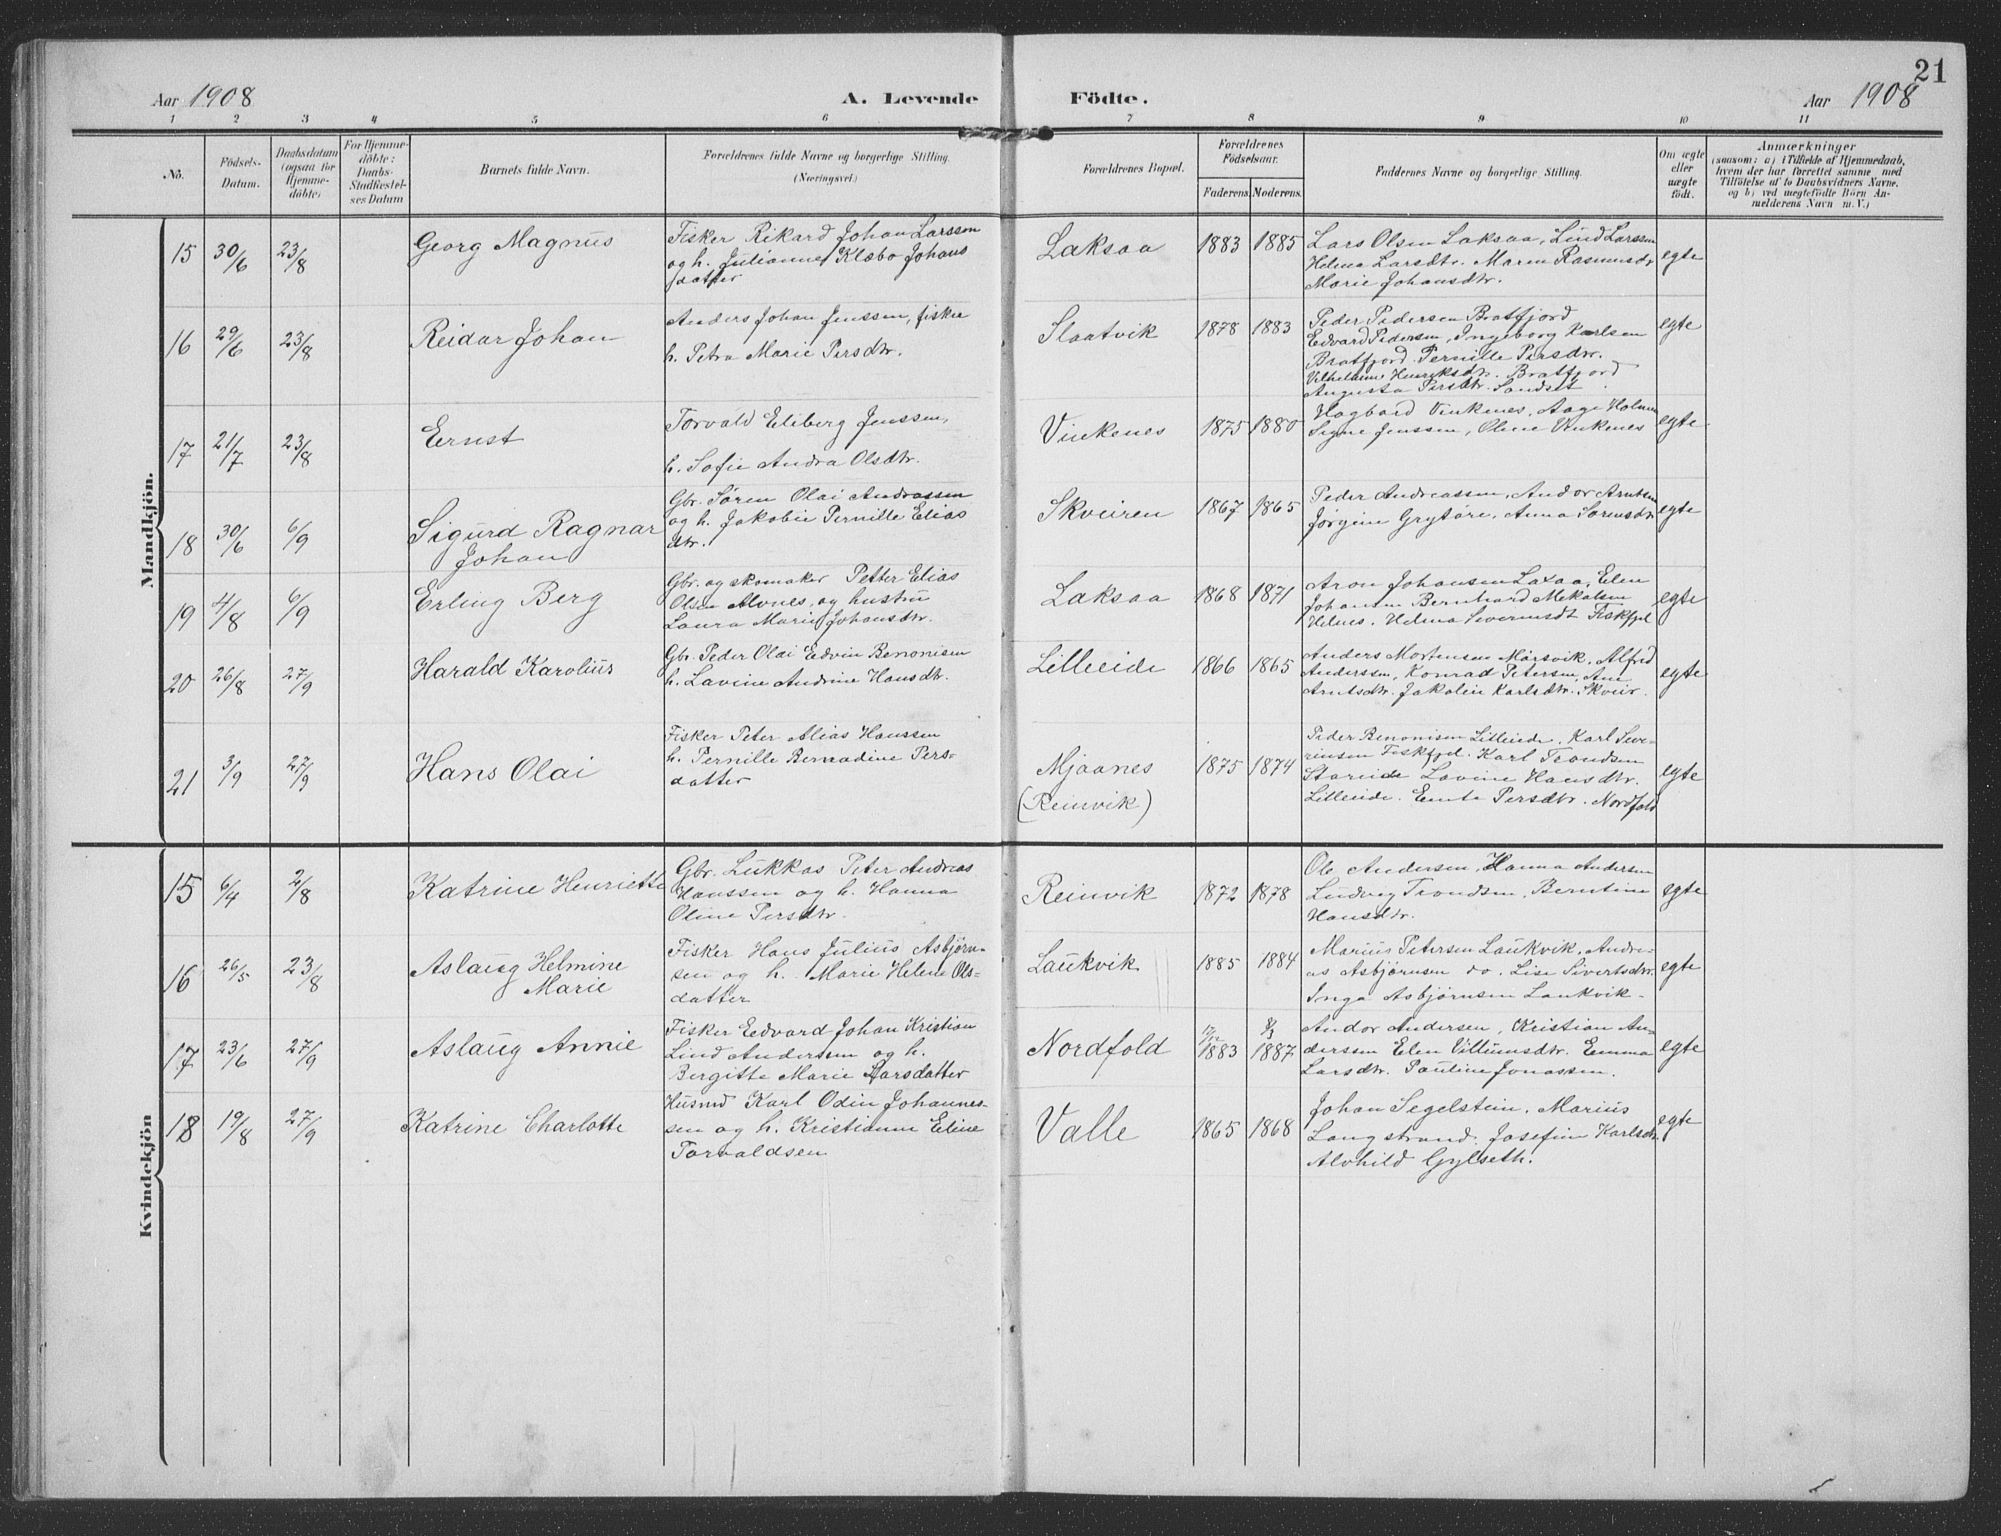 21
Aar 1908
A. Levende Födte.
Aar 1908
1 2 3 4 5 6 7 8 9 10 11
No.
Födsels-Datum.
Daabsdatum (ogsaa for Hjemme-döbte)
For Hjemme-döbte: Daabs-Stadfæstel-ses Datum
Barnets fulde Navn.
Forældrenes fulde Navne og borgerlige Stilling.
(Næringsvei.)
Forældrenes Bopæl.
Forældrenes Födselsaar.
Faderens Moderens.
Faddernes Navne og borgerlige Stilling.
Om ægte eller uægte födt.
Anmærkninger
(saasom: a) i Tilfælde af Hjemmedaab,
hvem der har forrettet samme, med
Tilföielse af to Daabsvidners Navne,
og b) ved uegtefödte Börn An-
melderens Navn m. V.)
Mandkjön.
15 30/6 23/8 Georg Magnus
Fisker Rikard Johan Larssen
og h. Julianne Klæbo Johans
datter
Laksaa 1883 1885
Lars Olsen Laksaa, Lind Larssen
Helma Larsdtr. Maren Rasmusdtr
Marie Johansdtr.
egte
16 29/6 23/8 Reidar Johan
Anders Johan Jenssen, fisker
h. Petra Marie Persdtr.
Slaatvik 1878 1883
Peder Pedersen Bratfjord
Edvard Pedersen, Ingeborg Karlsen
Bratfjord. Pernille Persdtr.
Vilhelmine Henriksdtr. Bratfjord
Augusta Persdtr. Sandset.
egte
17 21/7 23/8 Ernst
Torvald Eliberg Jenssen,
h. Sofie Andra Olsdtr.
Vinkenes 1875 1880
Hagbard Vinkenes, Aage Holmen
Signe Jenssen, Oline Vinkenes
egte
18 30/6 6/9 Sigurd Ragnar
Johan
Gbr. Søren Olai Andreassen
og h. Jakobie Pernille Elias
dtr.
Skveiren 1867 1865
Peder Andreassen, Andor Arntsen
Jørgine Grytøre, Anna Sørensdtr
egte
19 4/8 6/9 Erling Berg
Gbr. og skomaker Petter Elias
Olsen Alvnes, og hustru
Laura Marie Johansdtr.
Laksaa 1868 1871
Aron Johansen Laxaa, Elen
Johansen Bernhard Mekalsen
Helnes. Helma Severinsdt Fiskfjel
egte
20 26/8 27/9 Harald Karolius
Gbr. Peder Olai Edvin Benonisen
h. Lavine Andrine Hansdtr.
Lilleeide 1866 1865
Anders Mortensen Mørsvik, Alfred
Anderssen, Konrad Petersen, Ane
Arntsdtr. Jakolin Karlsdtr. Skveir.
egte
21 3/9 27/9 Hans Olai
Fisker Peter Alias Hanssen
h. Pernille Bernadine Pers-
datter
Mjaanes
(Reinvik)
1875 1874
Peder Benonisen Lilleeide, Karl Seve-
rinsen Fiskfjel. Karl Trondsen
Storeide Lavine Hansdtr.
Lilleeide. Emte Persdtr. Nordfold
egte
Kvindekjön
15 6/4 2/8 Katrine Henriette
Gbr. Lukkas Peter Andreas
Hanssen og h. Hanna
Oline Persdtr.
Reinvik 1872 1878
Ole Andersen, Hanna Andersen
Ludvig Trondsen, Berntine
Hansdtr.
egte
16 26/5 23/8 Aslaug Helmine
Marie
Fisker Hans Julius Asbjørn-
sen og h. Marie Helene Ols-
datter
Laukvik 1885 1884
Marius Petersen Laukvik, Andre-
as Asbjørnsen do. Lise Sivertsdtr.
Inga Asbjørnsen Laukvik-
egte
17 23/6 27/9 Aslaug Annie
Fisker Edvard Johan Kristian
Lind Andersen og h.
Bergitte Marie Larsdatter
Nordfold 17/12 1883 8/3 1887
Andor Andersen, Kristian An-
derssen Elen Villumsdtr. Emma
Larsdtr. Pauline Jonassen.
egte
18 19/8 27/9 Katrine Charlotte
Husmd Karl Odin Johannes-
sen og h. Kristianne Eline
Torvaldsen
Valle 1865 1868
Johan Segelstein, Marius
Langstrand. Josefine Karlsdtr.
Alvhild Gylseth.
egte